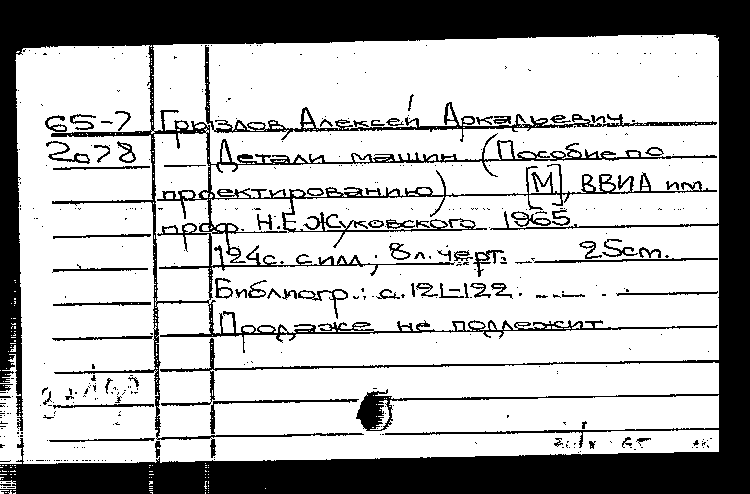 65-7 Грызлов, Алексей Аркадьевич.
2078 Детали машин (Пособие по
проектированию). [М], ВВИА им.
проф. Н.Е.Жуковского 1965.
124с. с илл.; 8л. черт. 25см.
Библиогр.: с.121-122.
Продаже не подлежит